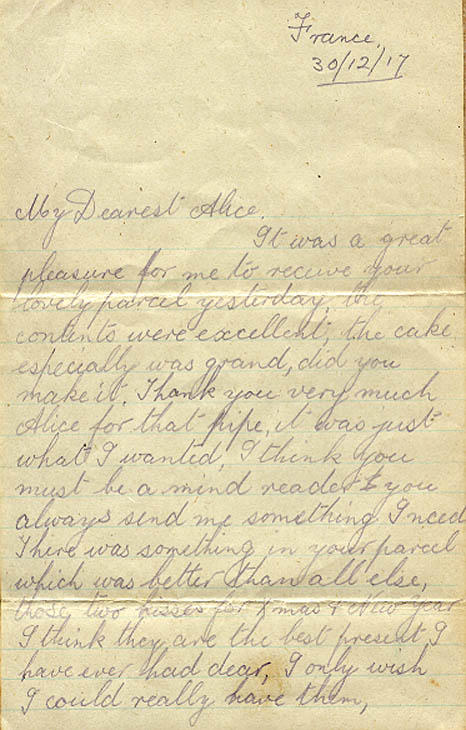 France,
30/12/17
My Dearest Alice.
It was a great
pleasure for me to receive your
lovely parcel yesterday, the
contents were excellent, the cake
especially was grand, did you
make it. Thank you very much
Alice for that pipe, it was just
what I wanted, I think you
must be a mind reader & you
always send me something I need
There was something in your parcel
which was better than all else,
those two kisses for Xmas & New Year
I think they are the best present I
have ever had dear, I only wish
I could really have them,